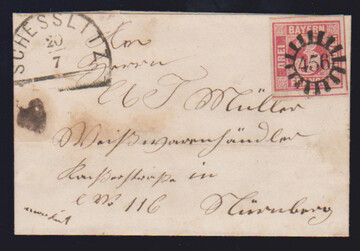 SCHESSLITZ
20
7
BAYERN
DREI
456
Herrn
Müller
Weißwarenhändler
Kaiserstraße in
No 116
Nürnberg